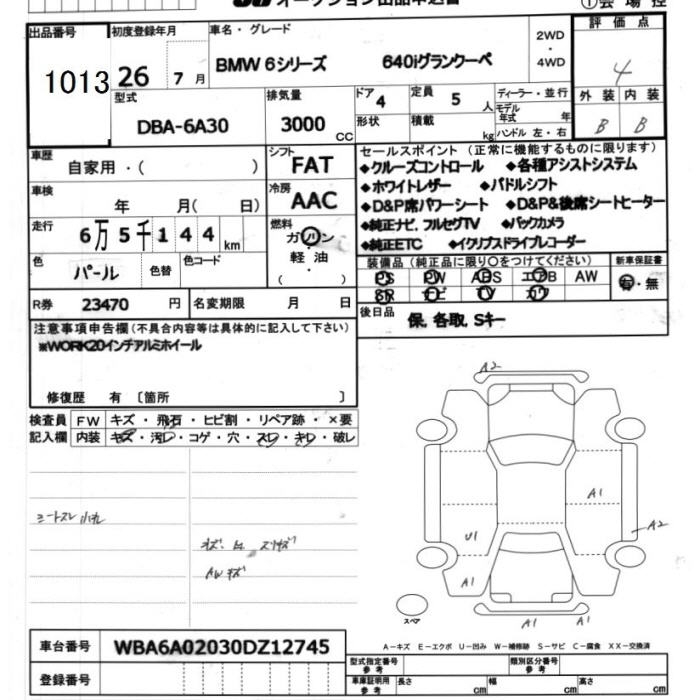 オークション出品申込書 ①会場控
出品番号 1013
初度登録年月 26年 7月
車名・グレード BMW 6シリーズ 640iグランクーペ
2WD・4WD
評価点 4
型式 DBA-6A30
排気量 3000 CC
ドア 4
形状
定員 5 人
積載 kg
ディーラー・並行
モデル年式 年
ハンドル 左・右
外装 内装
B B
車歴 自家用・( )
シフト FAT
セールスポイント (正常に機能するものに限ります)
◆クルーズコントロール ◆各種アシストシステム
◆ホワイトレザー ◆パドルシフト
◆D&P席パワーシート ◆D&P&後席シートヒーター
◆純正ナビ、フルセグTV ◆バックカメラ
◆純正ETC ◆イクリプスドライブレコーダー
車検 年 月( 日)
冷房 AAC
走行 6万5千144 km
燃料 ガソリン 軽油 ・( )
色 パール
色替
色コード
装備品 (純正品に限り○をつけてください)
PS PW ABS エアB AW
SR ナビ TV カワ
新車保証書 有・無
R券 23470 円
名変期限 月 日
後日品 保, 各取, Sキー
注意事項申告欄 (不具合内容等は具体的に記入して下さい)
※WORK20インチアルミホイール
修復歴 有 〔箇所 〕
検査員記入欄
FW キズ・飛石・ヒビ割・リペア跡・×要
内装 キズ・汚レ・コゲ・穴・スレ・キレ・破レ
シートスレ
キズ
AWキズ
A2
A1
A2
U1
A1
A1
A1
スペア
A-キズ E-エクボ U-凹み W-補修跡 S-サビ C-腐食 XX-交換済
車台番号 WBA6A02030DZ12745
登録番号
型式指定番号 参考
類別区分番号 参考
車庫証明用 参考 長さ cm 幅 cm 高さ cm